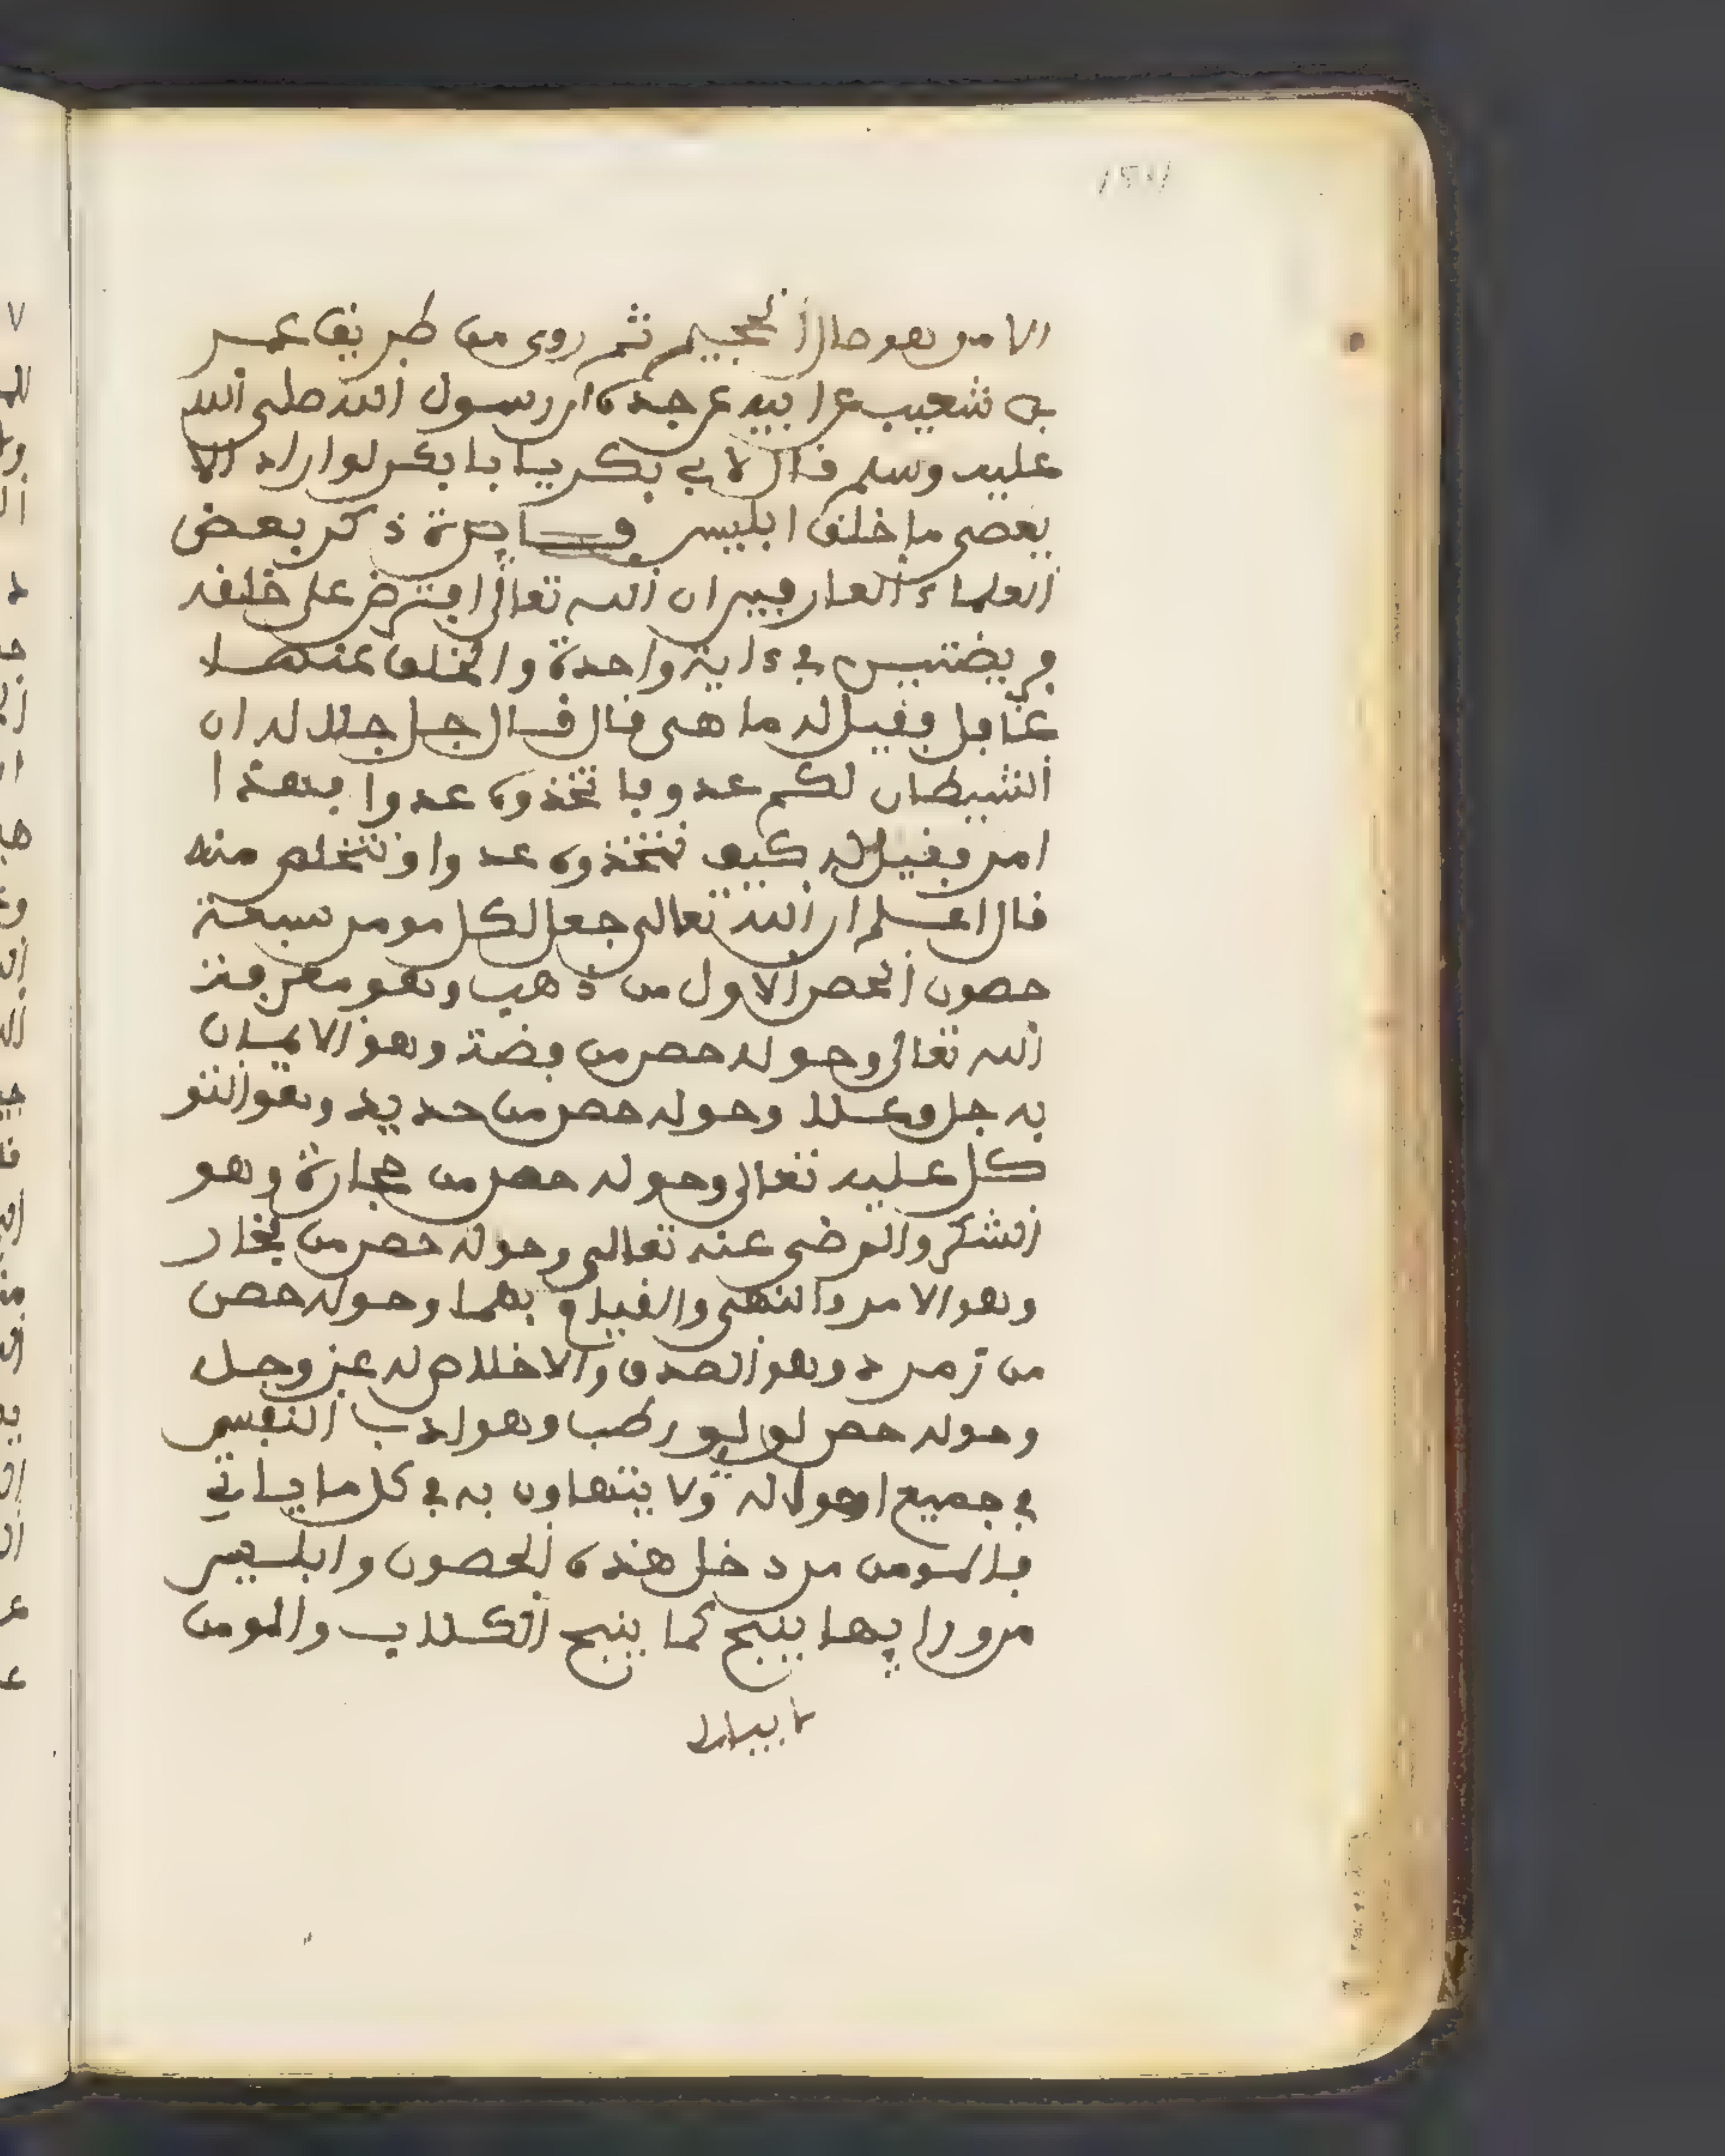 الا من هو صال الجحيم ثم روى من طريق عمر
بن شعيب عن ابيه عن جده ان رسول الله صلى الله
عليه وسلم قال لابي بكر يا با بكر لو اراد الا
يعصى ما خلق ابليس فـايدة ذكر بعض
العلماء العارفين ان الله تعالى افترض على خلقه
فريضتين في ءاية واحدة والخلق عنها
غافل فقيل له ما هى قال قال جل جلاله ان
الشيطان لكم عدو فاتخذوه عدوا فهذا
امر فقيل له كيف نتخذوه عدوا ونتخلص منه
قال اعلم ان الله تعالى جعل لكل مومن سبعة
حصون الحصن الاول من ذهب وهو معرفة
الله تعالى وحوله حصن من فضة وهو الايمان
به جل وعلا وحوله حصن من حديد وهو التو
كل عليه تعالى وحوله حصن من حجارة وهو
الشكر والرضى عنه تعالى وحوله حصن من فخار
وهو الامر والنهى والقيام بهما وحوله حصن
من زمرد وهو الصدق والاخلاص له عز وجل
وحوله حصن لولو رطب وهو ادب النفس
في جميع احواله ولا يتهاون به في كل ما ياتي
فالمومن من دخل هذه الحصون وابليس
من ورايها ينبح كما ينبح الكلاب والمومن